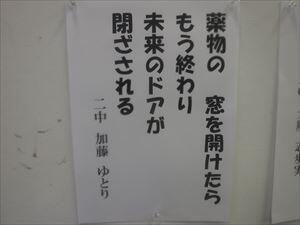 薬物の　窓を開けたら
もう終わり
未来のドアが
閉ざされる
二中　加藤　ゆとり